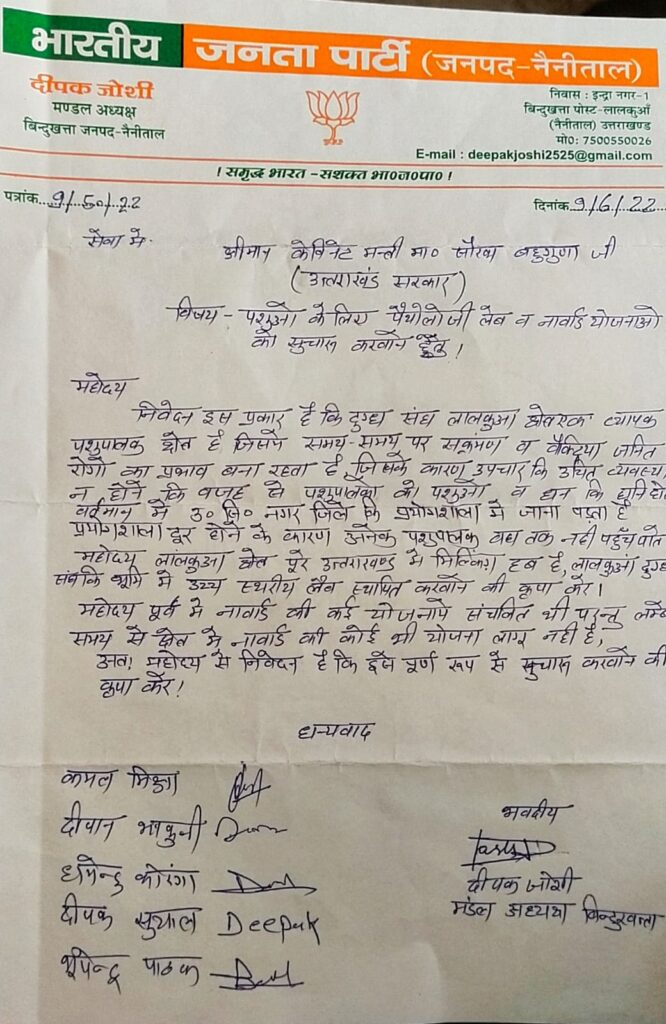 भारतीय जनता पार्टी (जनपद-नैनीताल)
दीपक जोशी
मण्डल अध्यक्ष
बिन्दुखत्ता जनपद-नैनीताल
निवास : इन्द्रा नगर-1
बिन्दुखत्ता पोस्ट-लालकुआँ
(नैनीताल) उत्तराखण्ड
मो0: 7500550026
E-mail : deepakjoshi2525@gmail.com
! समृद्ध भारत -सशक्त भा०ज०पा० !
पत्रांक..9/50/22
दिनांक..9/6/22..
सेवा में
श्रीमान केविनेट मन्त्री मा० सौरव बहुगुणा जी
(उत्तराखंड सरकार)
विषय - पशुओ के लिए पैथोलोजी लेब व नावार्ड योजनाओ
को सुचारू करवाने हेतु !
महोदय
निवेदन इस प्रकार है कि दुग्ध संघ लालकुआ क्षेत्र एक व्यापक
पशुपालक क्षेत्र है जिसमे समय-समय पर सक्रमण व वैक्ट्रिया जनित
रोगो का प्रभाव बना रहता है, जिसके कारण उपचार कि उचित व्यवस्था
न होने कि वजह से पशुपालको को पशुओ व धन कि हानि
वर्तमान मे उ० सि० नगर जिले कि प्रयोगशाला मे जाना पड़ता है
प्रयोगशाला दूर होने के कारण अनेक पशुपालक वहा तक नही पहुँच पाते
महोदय लालकुआ क्षेत्र पूरे उत्तराखण्ड मे मिल्किग हब है, लालकुआ दुग्ध
संघ कि भूमि मे उच्च स्थरीय लैव स्थापित करवाने की कृपा करे।
महोदय पूर्व मे नावार्ड की कई योजनाये संचवित थी परन्तु लम्बे
समय से क्षेत्र मे नावार्ड की कोई भी योजना लागू नही है,
अतः महोदय से निवेदन है कि इसे पूर्ण रूप से सुचारू करवाने की
कृपा करे !
धन्यवाद
कमल मिश्रा
दीवान भाकुनी
धर्मेन्द्र कोरंगा
दीपक सुयाल Deepak
भूपेन्द्र पाठक
भवदीय
दीपक जोशी
मंडल अध्यक्ष बिन्दुखत्ता